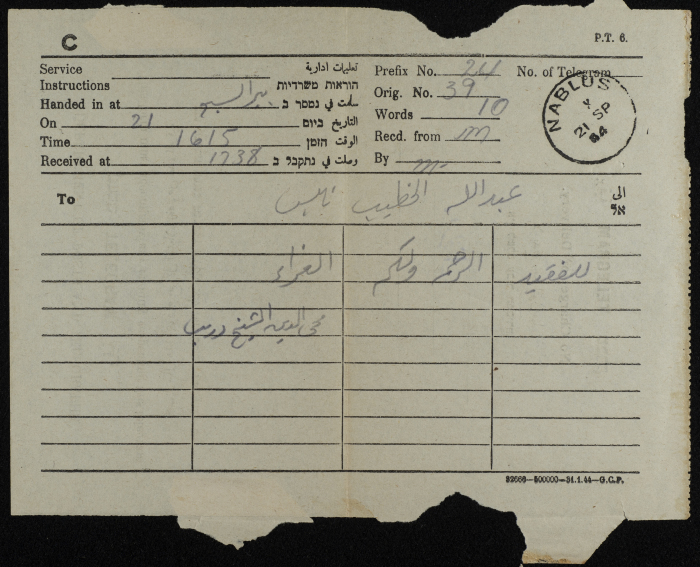 C
P.T. 6.
Service تعليمات ادارية
Instructions הוראות משרדיות
Handed in at بير السبع سلمت في נמסר ב
On 21 التاريخ ביום
Time 1615 الوقت הזמן
Received at 1738 وصلت في נתקבל ב
Prefix No. 24 No. of Telegram
Orig. No. 39
Words 10
Recd. from m
By m
NABLUS
21 SP
44
To عبدالله الخطيب نابلس الى אל
للفقيد الرحمة ولكم العزاء
محي الدين الشيخ
32666—500000—31.1.44—G.C.P.